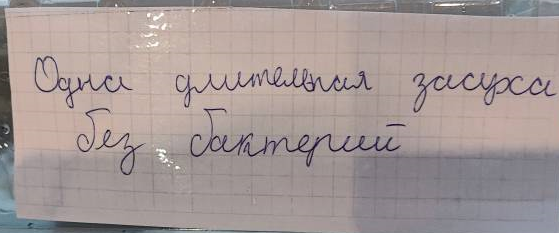 Одна длительная засуха
без бактерий